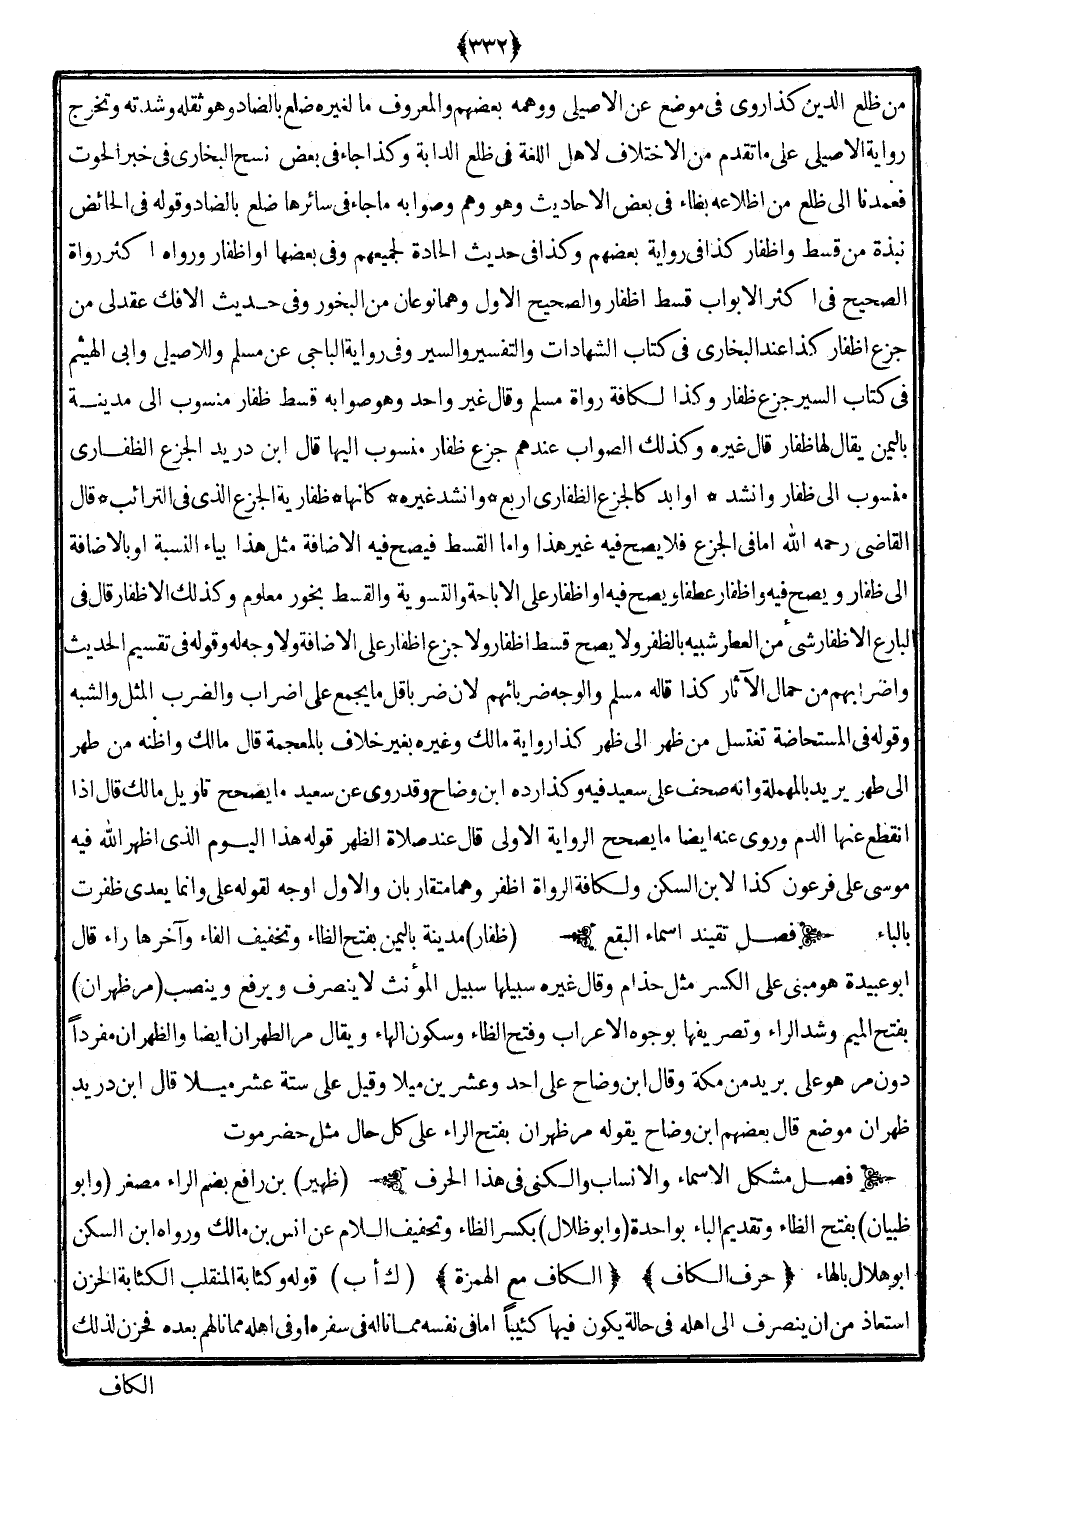 ﴿٣٣٢﴾
من ظلع الدين كذا روى فى موضع عن الاصيلى ووهمه بعضهم والمعروف ما لغيره ضلع بالضاد وهو ثقله وشدته وتخرج
رواية الاصيلى على ما تقدم من الاختلاف لاهل اللغة فى ظلع الدابة وكذا جاء فى بعض نسخ البخارى فى خبر الحوت
فعمدنا الى ظلع من اظلاعه بظاء فى بعض الاحاديث وهو وهم وصوابه ما جاء فى سائرها ضلع بالضاد وقوله فى الحائض
نبذة من قسط واظفار كذا فى رواية بعضهم وكذا فى حديث الحادة لجميعهم وفى بعضها او اظفار ورواه اكثر رواة
الصحيح فى اكثر الابواب قسط اظفار والصحيح الاول وهما نوعان من البخور وفى حديث الافك عقد لى من
جزع اظفار كذا عند البخارى فى كتاب الشهادات والتفسير والسير وفى رواية الباجى عن مسلم وللاصيلى وابى الهيثم
فى كتاب السير جزع ظفار وكذا لكافة رواة مسلم وقال غير واحد وهو صوابه قسط ظفار منسوب الى مدينة
باليمن يقال لها ظفار قال غيره وكذلك الصواب عندهم جزع ظفار منسوب اليها قال ابن دريد الجزع الظفارى
منسوب الى ظفار وانشد * اوابد كالجزع الظفارى اربع * وانشد غيره * كانها * ظفارية الجزع الذى فى الترائب * قال
القاضى رحمه الله اما فى الجزع فلا يصح فيه غير هذا واما القسط فيصح فيه الاضافة مثل هذا بياء النسبة او بالاضافة
الى ظفار ويصح فيه واظفار عطفا ويصح فيه او اظفار على الاباحة والتسوية والقسط بخور معلوم وكذلك الاظفار قال فى
البارع الاظفار شىء من العطر شبيه بالظفر ولا يصح قسط اظفار ولا جزع اظفار على الاضافة ولا وجه له وقوله فى تقسيم الحديث
واضرابهم من حمال الآثار كذا قاله مسلم والوجه ضربائهم لان ضربا قل ما يجمع على اضراب والضرب المثل والشبه
وقوله فى المستحاضة تغتسل من ظهر الى ظهر كذا رواية مالك وغيره بغير خلاف بالمعجمة قال مالك واظنه من طهر
الى طهر يريد بالمهملة وانه صحف على سعيد فيه وكذا رده ابن وضاح وقد روى عن سعيد ما يصحح تاويل مالك قال اذا
انقطع عنها الدم وروى عنه ايضا ما يصحح الرواية الاولى قال عند صلاة الظهر قوله هذا اليوم الذى اظهر الله فيه
موسى على فرعون كذا لابن السكن ولكافة الرواة اظفر وهما متقاربان والاول اوجه لقوله على وانما يعدى ظفرت
بالباء فصل تقيند اسماء البقع (ظفار) مدينة باليمن بفتح الظاء وتخفيف الفاء وآخرها راء قال
ابو عبيدة هو مبنى على الكسر مثل حذام وقال غيره سبيلها سبيل المؤنث لا ينصرف ويرفع وينصب (مر ظهران)
بفتح الميم وشد الراء وتصريفها بوجوه الاعراب وفتح الظاء وسكون الهاء ويقال مر الظهران ايضا والظهران مفرداً
دون مر هو على بريد من مكة وقال ابن وضاح على احد وعشرين ميلا وقيل على ستة عشر ميلا قال ابن دريد
ظهران موضع قال بعضهم ابن وضاح يقوله مر ظهران بفتح الراء على كل حال مثل حضر موت
فصل مشكل الاسماء والانساب والكنى فى هذا الحرف (ظهير) بن رافع بضم الراء مصغر (وابو
ظبيان) بفتح الظاء وتقديم الباء بواحدة (وابو ظلال) بكسر الظاء وتخفيف اللام عن انس بن مالك ورواه ابن السكن
ابو هلال بالهاء ﴿حرف الكاف﴾ ﴿الكاف مع الهمزة﴾ (ك أ ب) قوله وكئابة المنقلب الكئابة الحزن
استعاذ من ان ينصرف الى اهله فى حالة يكون فيها كئيباً اما فى نفسه مما ناله فى سفره او فى اهله مما نالهم بعده فحزن لذلك
الكاف